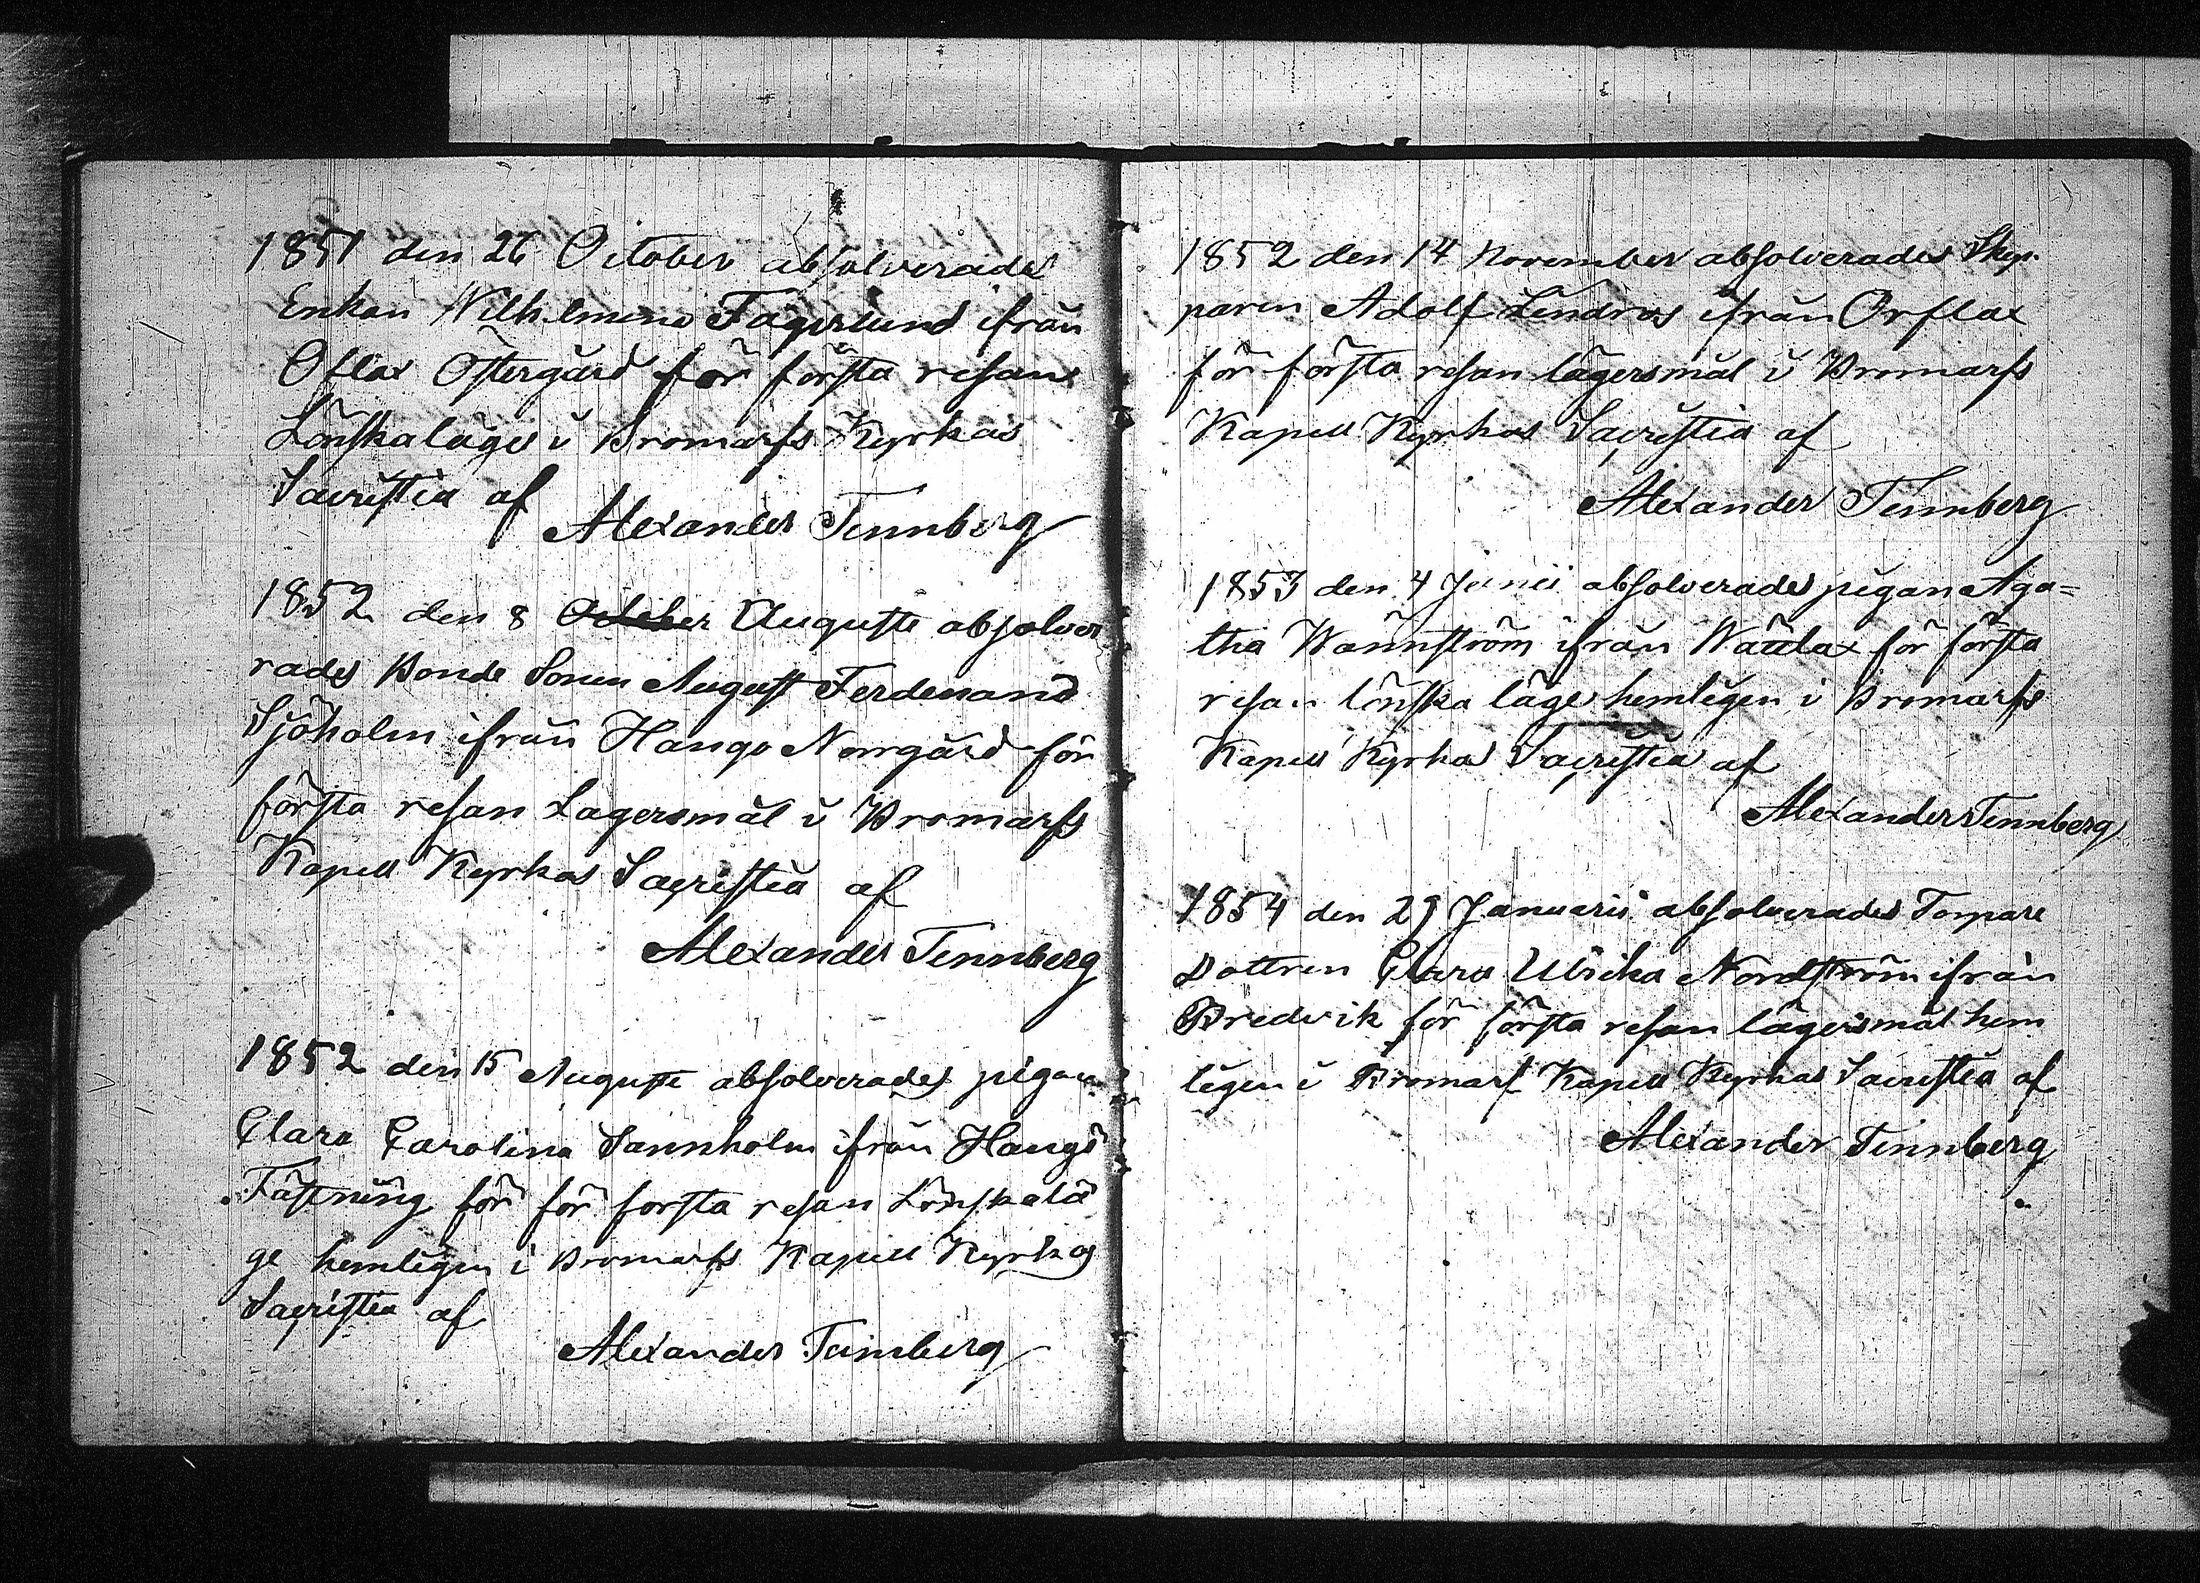 1851 den 26 October absolverades
Enkan Wilhelmina Fagerlund ifrån
Oflax Östergård för första resans
Lönskaläge i Bromarfs Kyrkas
Sacristia af
Alexander Tennberg
1852 den 8 October Augusti absolver
rades Bonde Sonen August Ferdenand
Sjöholm ifrån Hangö Norrgård för
första resan Lagersmål i Bromarfs
Kapell Kyrkas Sacristia af
Alexander Tennberg
1852 den 15 Augusti absolverades pigan
Clara Carolina Sannholm ifrån Hangö
Fästning för för forsta resan Lönskalä
ge hemligen i Bromarfs Kapell Kyrkas
Sacristia af
Alexander Tennberg
1852 den 14 November absolverades Skep
paren Adolf Lindros ifrån Orflax
för första resan lägersmål i Bromarfs
Kapell Kyrkas Sacristia af
Alexander Tennberg
1853 den 4 Junii absolverades pigan Aga=
tha Wännström ifrån Wättlax för första
resan lönska läge hemligen i Bromarfs
Kapell Kyrkas Sacristia af
Alexander Tennberg
1854 den 29 Januarii absolverades Torpare
Dottren Clara Ulrika Nordström ifrån
Bredvik för första resan lägersmål hem
ligen i Bromarf Kapell Kyrkas Sacristia af
Alexander Tennberg